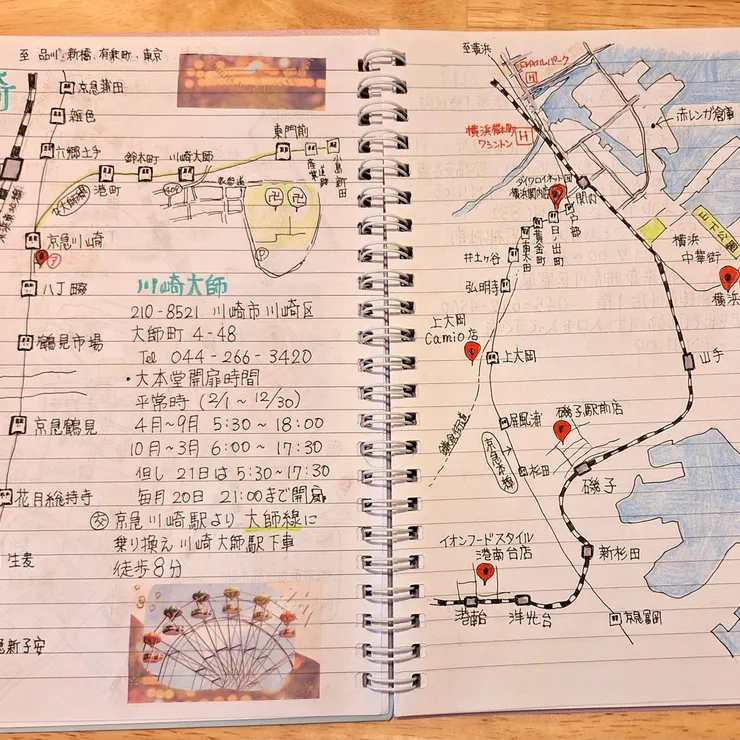 至 品川、新橋、有楽町、東京
崎
京急蒲田
雑色
六郷土手
東門前
小島新田
鈴木町
川崎大師
港町
表参道
卍
卍
P
京急川崎
八丁畷
鶴見市場
京急鶴見
花月総持寺
生麦
急新子安
川崎大師
210-8521 川崎市川崎区
大師町 4-48
Tel 044-266-3420
・大本堂開扉時間
平常時 (2/1〜12/30)
4月〜9月 5:30〜18:00
10月〜3月 6:00〜17:30
但し 21日は 5:30〜17:30
毎月20日 21:00まで開扉
交 京急川崎駅より 大師線に
乗り換え 川崎大師駅下車
徒歩8分
至横浜
ロイヤルパーク
H
横浜桜木町
ワシントン
H
赤レンガ倉庫
ダイワロイネット
横浜関内
関内
戸部
日ノ出町
黄金町
山下公園
横浜
中華街
横浜
井土ヶ谷
弘明寺
上大岡
Camio店
上大岡
山手
鎌倉街道
屏風浦
磯子駅前店
京急本線
杉田
磯子
イオンフードスタイル
港南台店
新杉田
港南台
洋光台
京急富岡